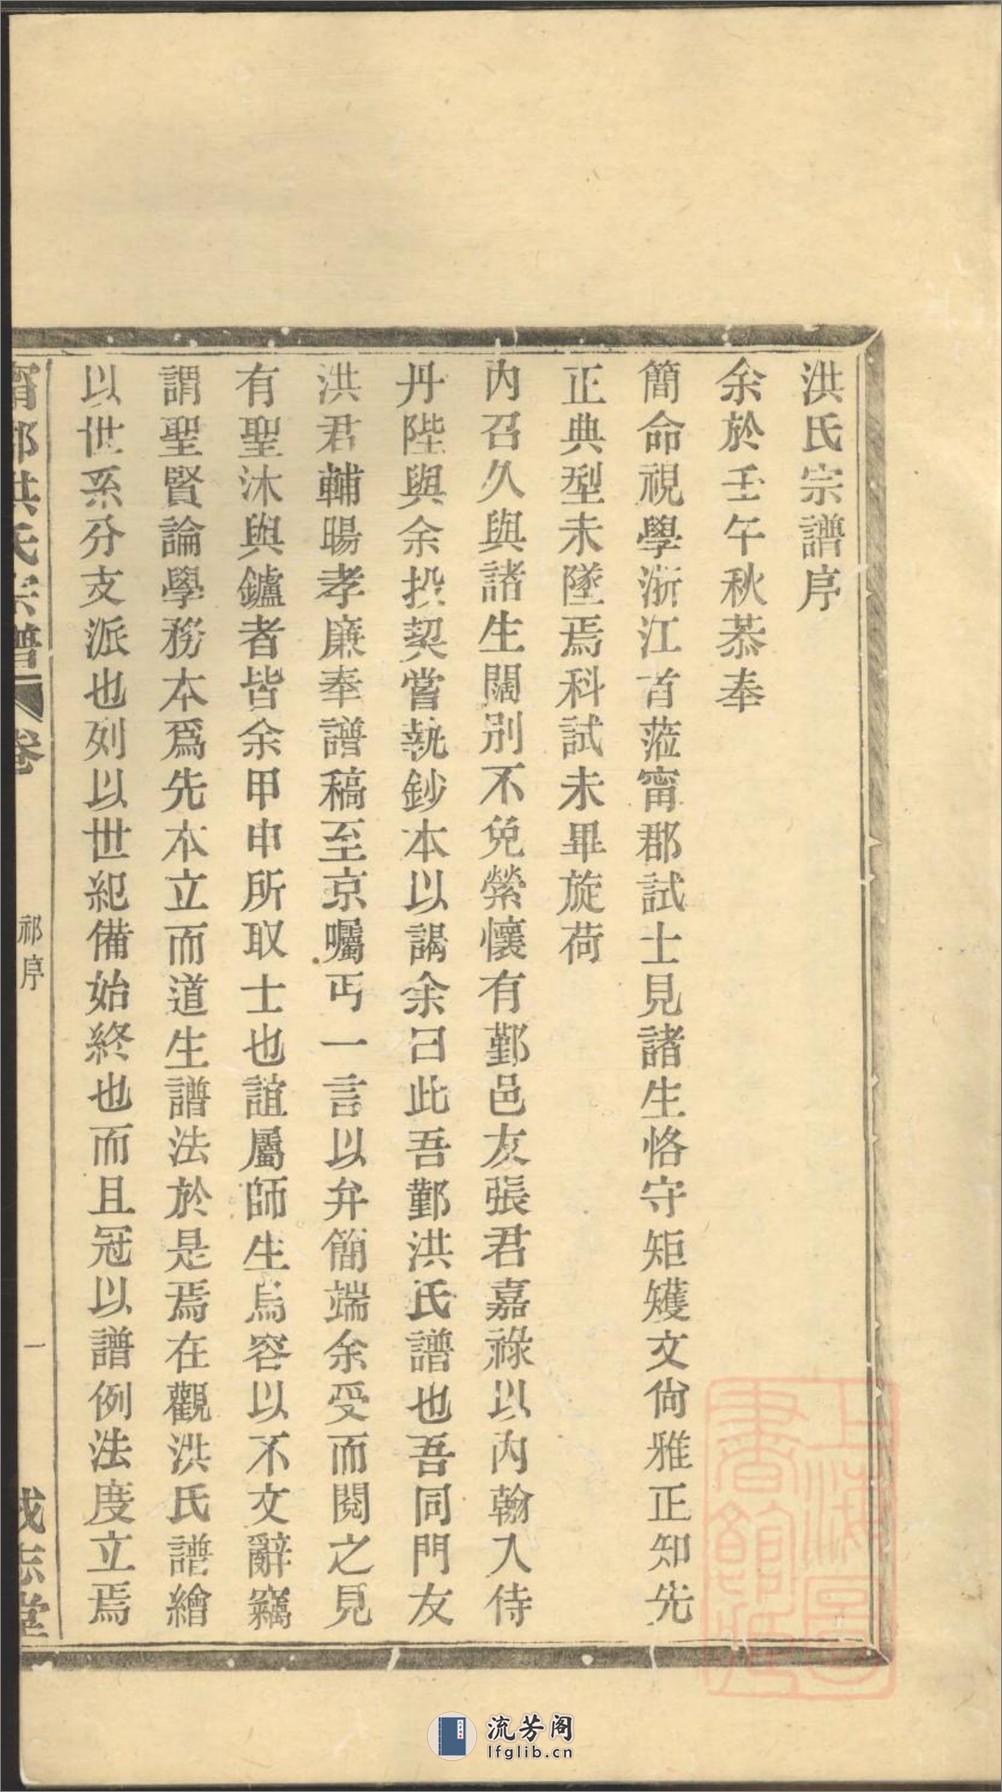 洪氏宗譜序
余於壬午秋恭奉
簡命視學浙江首蒞甯郡試士見諸生恪守矩矱文尙雅正知先
正典型未墜焉科試未畢旋荷
內召久與諸生闊別不免縈懷有鄞邑友張君嘉祿以內翰入侍
丹陛與余投契嘗執鈔本以謁余曰此吾鄞洪氏譜也吾同門友
洪君輔暘孝廉奉譜稿至京囑丐一言以弁簡端余受而閱之見
有聖沐與鑪者皆余甲申所取士也誼屬師生烏容以不文辭竊
謂聖賢論學務本爲先本立而道生譜法於是焉在觀洪氏譜繪
以世系分支派也列以世紀備始終也而且冠以譜例法度立焉
甯郡洪氏宗譜 卷 祁序 一 成志堂
上海圖書館藏
流芳阁
lfglib.cn